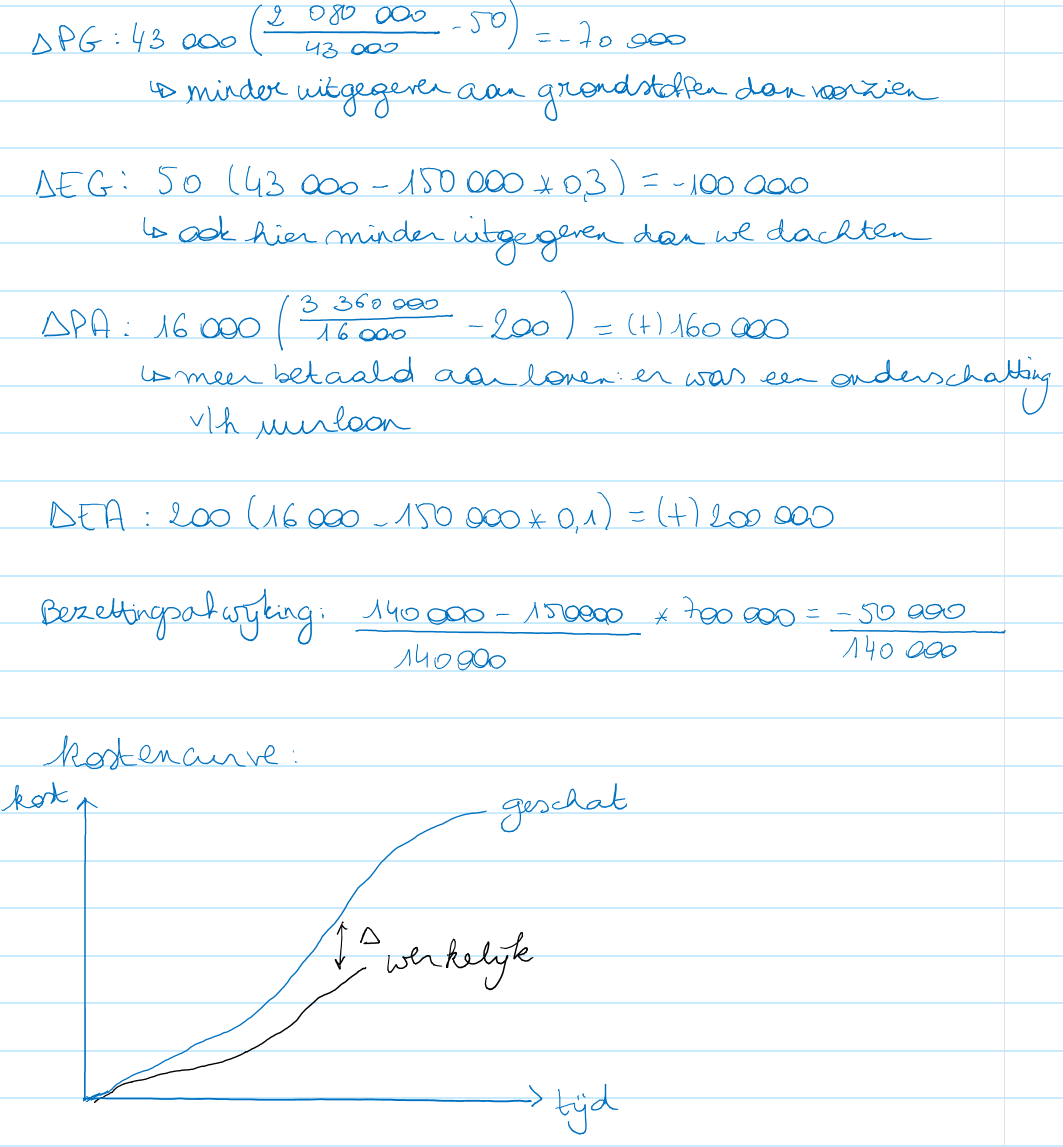 ΔPG : 43 000 (2 080 000 / 43 000 - 50) = - 70 000
↳ minder uitgegeven aan grondstoffen dan voorzien
ΔEG : 50 (43 000 - 150 000 * 0,3) = -100 000
↳ ook hier minder uitgegeven dan we dachten
ΔPA : 16 000 (3 360 000 / 16 000 - 200) = (+) 160 000
↳ meer betaald aan lonen: er was een onderschatting
v/h uurloon
ΔEA : 200 (16 000 - 150 000 * 0,1) = (+) 200 000
Bezettingsafwijking: 140 000 - 150000 / 140 000 * 700 000 = - 50 000 / 140 000
Kostencurve:
kost
geschat
Δ
werkelijk
tijd